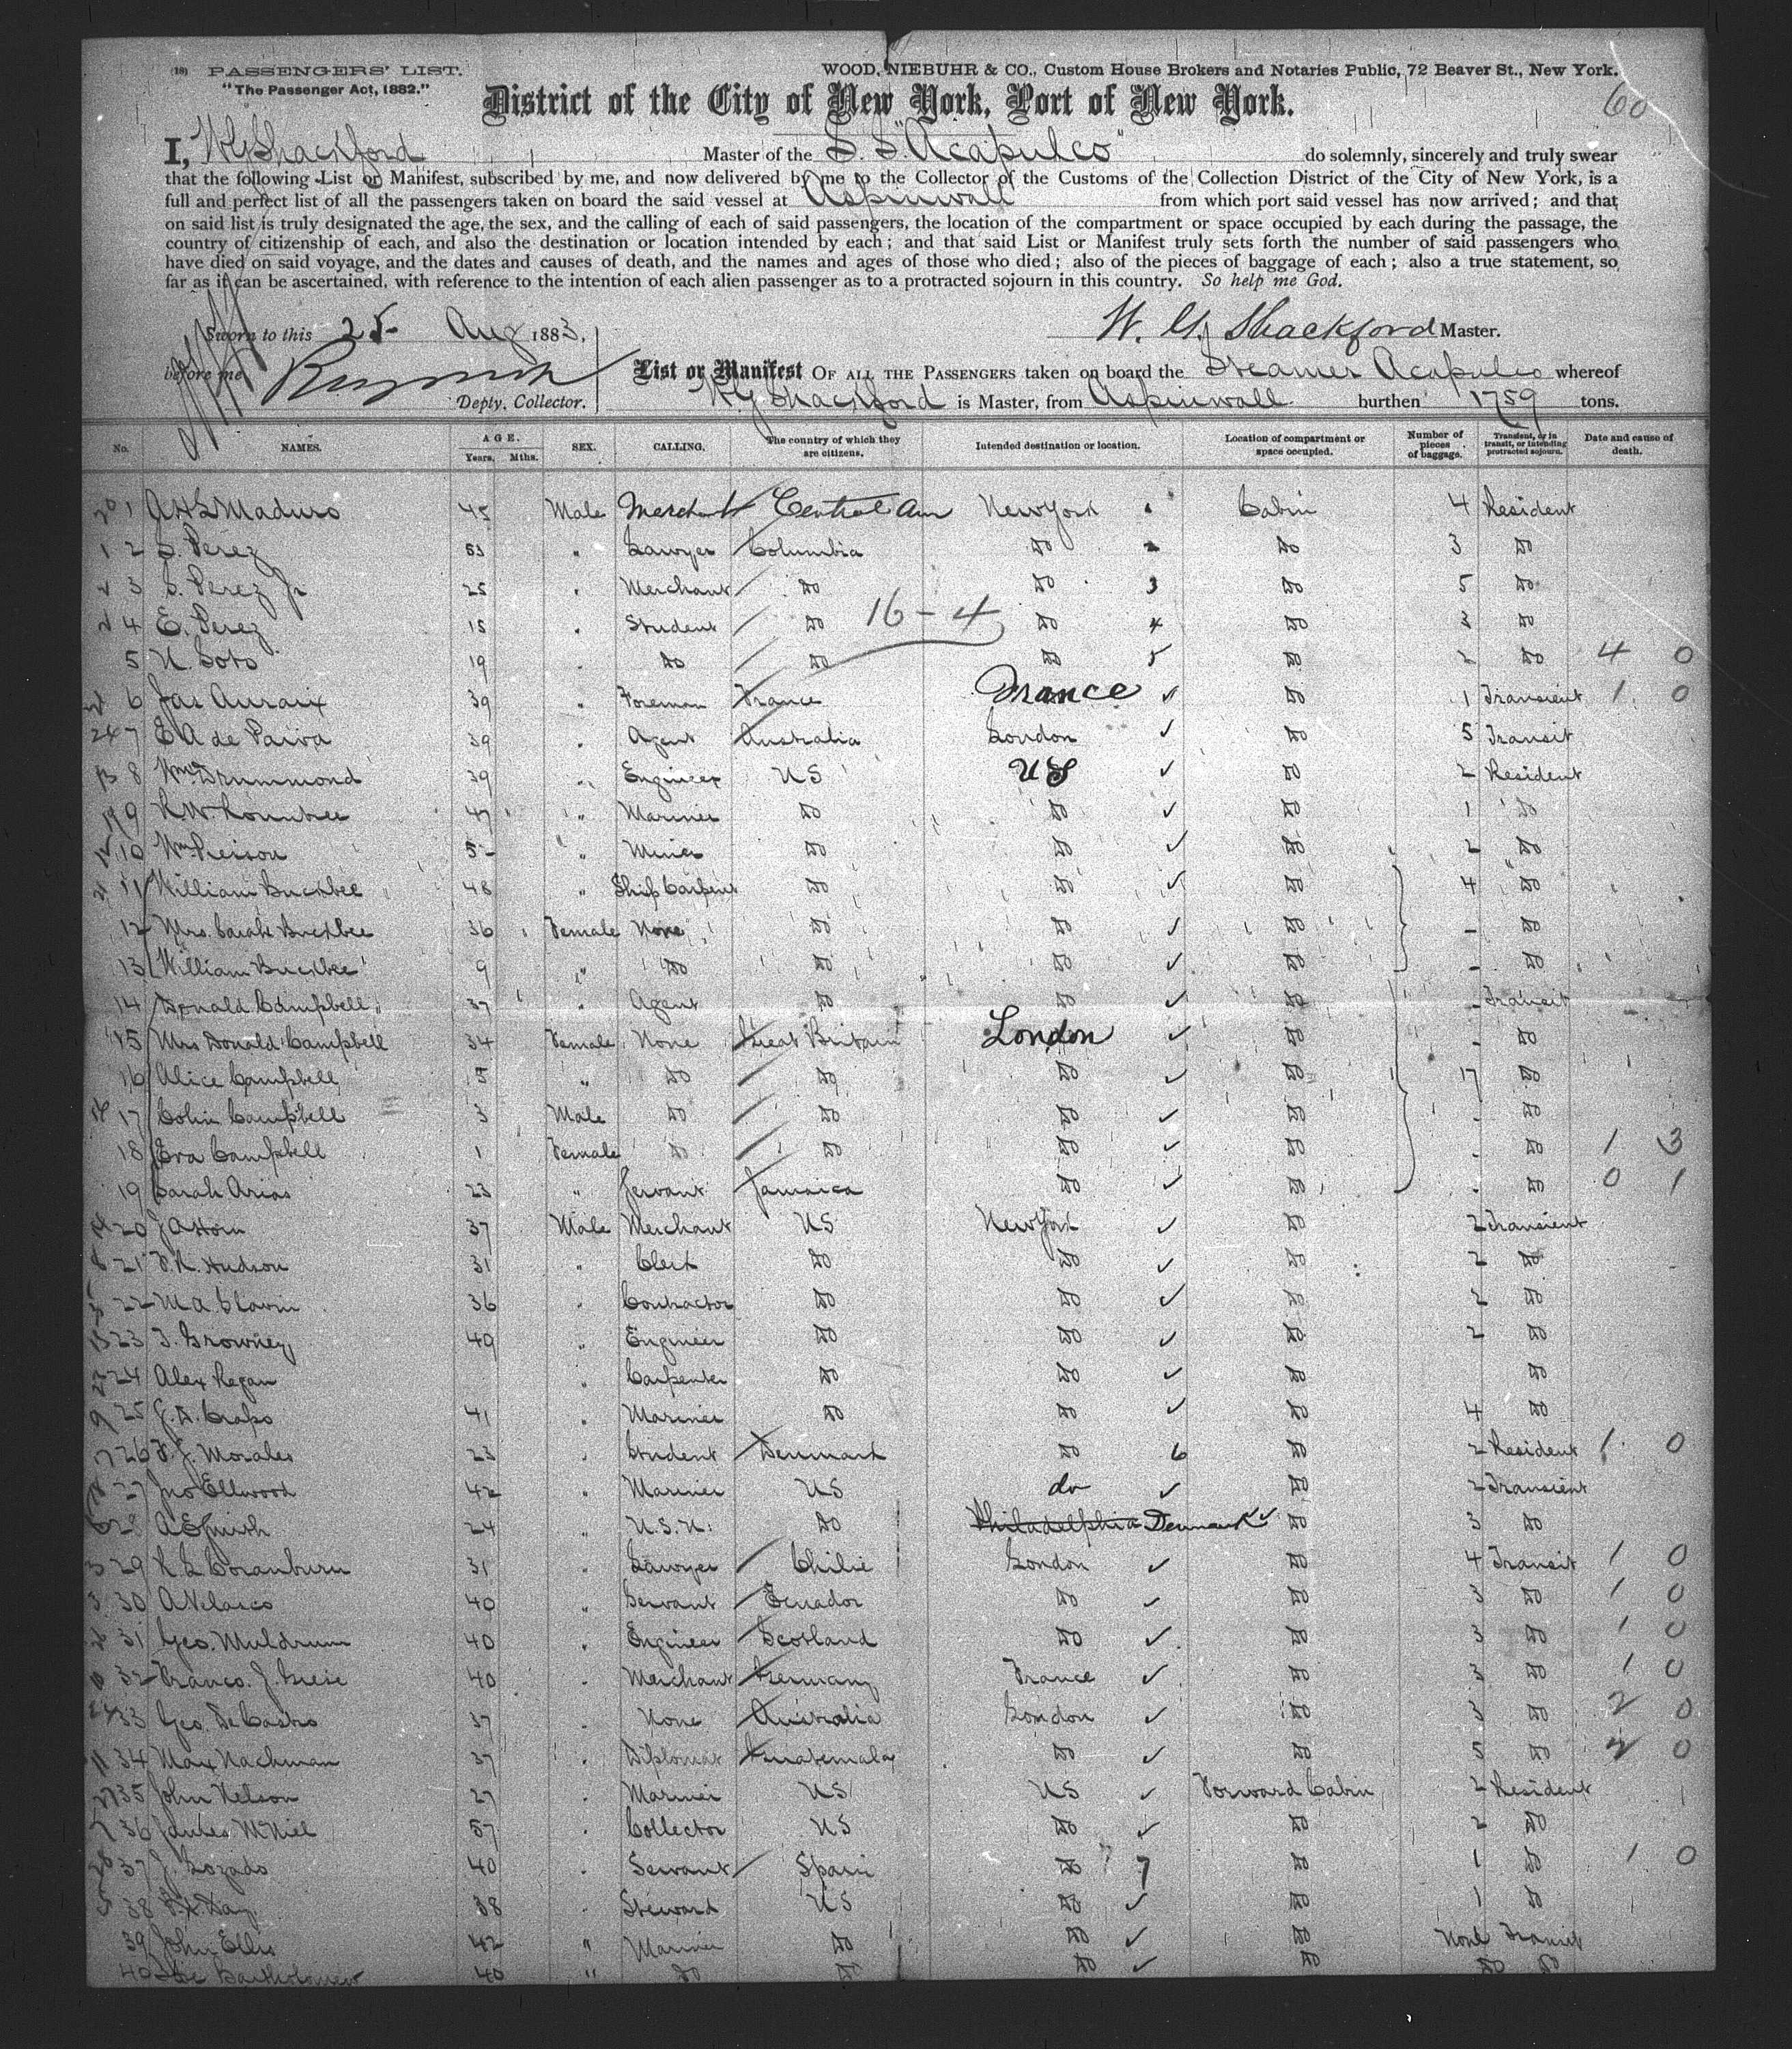 (18) PASSENGERS' LIST.
WOOD, NIEBUHR & CO., Custom House Brokers and Notaries Public, 72 Beaver St., New York.
"The Passenger Act, 1882."
60
District of the City of New York, Port of New York.
I, W G Shackford Master of the S. S. "Acapulco" do solemnly, sincerely and truly swear
that the following List or Manifest, subscribed by me, and now delivered by me to the Collector of the Customs of the Collection District of the City of New York, is a
full and perfect list of all the passengers taken on board the said vessel at Aspinwall from which port said vessel has now arrived; and that
on said list is truly designated the age, the sex, and the calling of each of said passengers, the location of the compartment or space occupied by each during the passage, the
country of citizenship of each, and also the destination or location intended by each; and that said List or Manifest truly sets forth the number of said passengers who
have died on said voyage, and the dates and causes of death, and the names and ages of those who died; also of the pieces of baggage of each; also a true statement, so
far as it can be ascertained, with reference to the intention of each alien passenger as to a protracted sojourn in this country. So help me God.
Sworn to this 25 Aug 1883.
W. G. Shackford Master.
before me
Deputy. Collector.
List or Manifest OF ALL THE PASSENGERS taken on board the Steamer Acapulco whereof
W G Shackford is Master, from Aspinwall burthen 1759 tons.
No. NAMES. AGE. Years. Mths. SEX. CALLING. The country of which they are citizens. Intended destination or location. Location of compartment or space occupied. Number of pieces of baggage. Transient, or in transit, or intending protracted sojourn. Date and cause of death.
1 A H L Maduro 45 Male Merchant Central Am New York Cabin 4 Resident
2 S. Perez 53 " Lawyer Columbia Do 2 Do 3 Do
3 S. Perez Jr 25 " Merchant Do Do 3 Do 5 Do
4 E. Perez 15 " Student Do 16-4 Do 4 Do 3 Do
5 N. Soto 19 " Do Do Do 5 Do 2 Do 4 0
6 Jas Auraix 39 " Foreman France France Do 1 Transient 1 0
7 E A de Paiva 39 " Agent Australia London Do 5 Transit
8 Wm Drummond 39 " Engineer US US Do 2 Resident
9 R W Rountree 47 " Mariner Do Do Do 1 Do
10 Wm Peirson " Miner Do Do Do 2 Do
11 William Buckbee 48 " Ship Carpent Do Do Do 4 Do
12 Mrs. Sarah Buckbee 36 Female None Do Do Do - Do
13 William Buckbee 9 " Do Do Do Do - Do
14 Donald Campbell 37 " Agent Do Do Do - Transit
15 Mrs Donald Campbell 34 Female None Great Britain London Do - Do
16 Alice Campbell 5 " Do Do Do Do 17 Do
17 Colin Campbell 3 Male Do Do Do Do - Do
18 Eva Campbell 1 Female Do Do Do Do - Do 1 3
19 Sarah Arias 23 " Servant Jamaica Do Do - Do 0 1
20 J A Horn 37 Male Merchant US New York Do 2 Transient
21 F. R. Hudson 31 " Clerk Do Do Do 2 Do
22 M A Slavin 36 " Contractor Do Do Do 2 Do
23 T. Growney 49 " Engineer Do Do Do 2 Do
24 Alex Regan " Carpenter Do Do Do Do
25 J. D. Crapo 41 " Mariner Do Do Do 4 Do
26 F. J. Morales 23 " Student Denmark Do 6 Do 2 Resident 1 0
27 Jno Ellwood 42 " Mariner US do Do 2 Transient
28 A E Smith 24 " U.S.N. Do Philadelphia Denmark Do 3 Do
29 R L Coranburn 31 " Lawyer Chilie London Do 4 Transit 1 0
30 A Velasco 40 " Servant Ecuador Do Do 3 Do 1 0
31 Geo. Muldrum 40 " Engineer Scotland Do Do 3 Do 1 0
32 Franco. J. 40 " Merchant Germany France Do 3 Do 1 0
33 Geo. De Castro 37 " None Australia London Do 3 Do 2 0
34 Max Nachman 37 " Diplomat Guatemala Do Do 5 Do 2 0
35 John Nelson 27 " Mariner US US Forward Cabin 2 Resident
36 James McNiel 57 " Collector US Do Do 2 Do
37 J. Lozado 40 " Servant Spain Do 7 Do 1 Do 1 0
38 Day 38 " Steward US Do Do 1 Do
39 John Ellis 42 " Mariner Do Do Do None Transit
40 Bartholomew 40 " Do Do Do Do Do Do